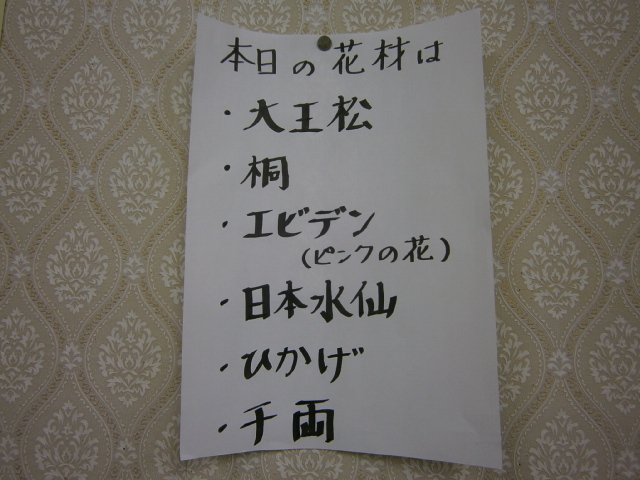 本日の花材は
・大王松
・桐
・エビデン
(ピンクの花)
・日本水仙
・ひかげ
・千両